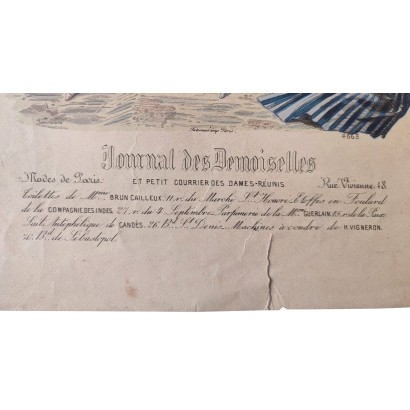 4663
Journal des Demoiselles
Modes de Paris. ET PETIT COURRIER DES DAMES-RÉUNIS Rue Vivienne, 48
Toilettes de Mme BRUN CAILLEUX, 11, r. du Marché St Honoré, Etoffes en Foulard
de la COMPAGNIE DES INDES, 27, r. du 4 Septembre, Parfumerie de la Mon GUERLAIN, 15, r. de la Paix
Lait Antéphélique de CANDÈS, 26, Bd St Denis, Machines à coudre de H. VIGNERON,
70, Bd de Sébastopol.